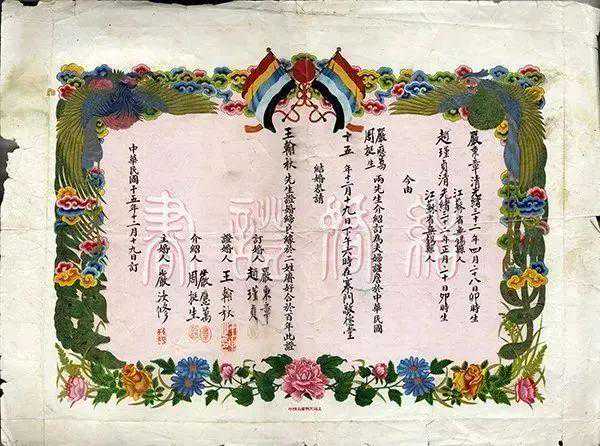 嚴東章 清光緒三十二年四月二十八卯時生
江蘇省無錫縣人
趙瑾貞 清光緒三十二年正月二十日卯時生
江蘇省無錫縣人
今由
嚴應萬
周挺生
兩先生介紹訂為夫婦謹詹於中華民國
十五年十一月十九日下午六時在寒門敬修堂
結婚恭請
王翰秋先生證婚締良緣於二姓庶好合於百年此證
訂婚人
嚴東章
趙瑾貞
證婚人 王翰秋
介紹人
嚴應萬
周挺生
主婚人 嚴汝修
中華民國十五年十一月十九日訂